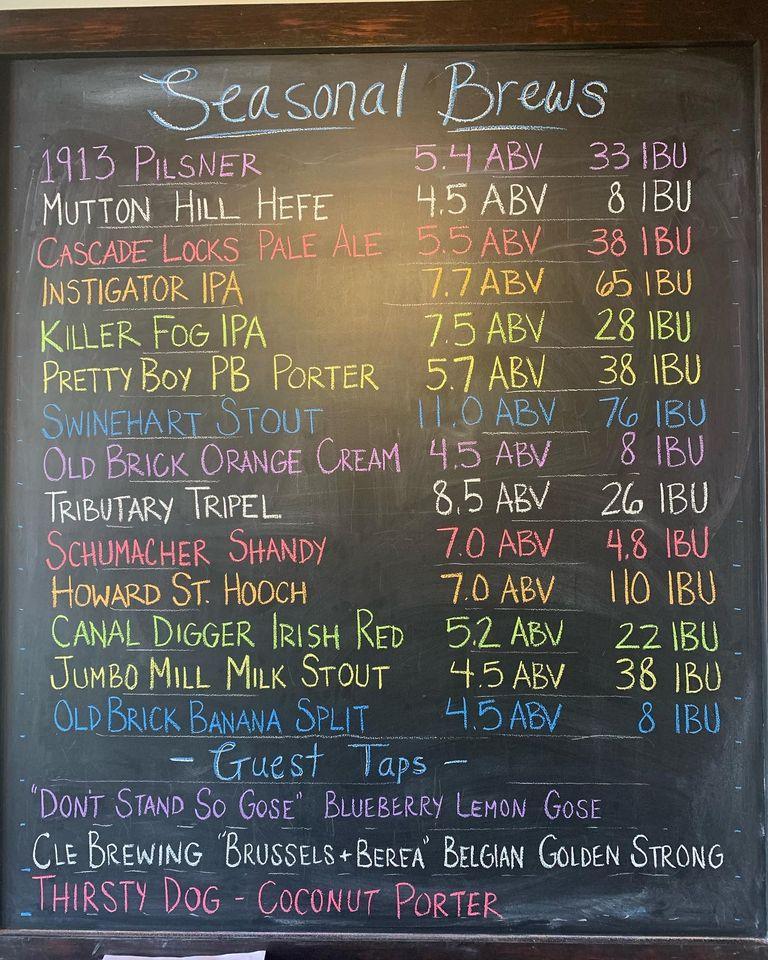 Seasonal Brews
1913 PILSNER 5.4 ABV 33 IBU
MUTTON HILL HEFE 4.5 ABV 8 IBU
CASCADE LOCKS PALE ALE 5.5 ABV 38 IBU
INSTIGATOR IPA 7.7 ABV 65 IBU
KILLER FOG IPA 7.5 ABV 28 IBU
PRETTY BOY PB PORTER 5.7 ABV 38 IBU
SWINEHART STOUT 11.0 ABV 76 IBU
OLD BRICK ORANGE CREAM 4.5 ABV 8 IBU
TRIBUTARY TRIPEL 8.5 ABV 26 IBU
SCHUMACHER SHANDY 7.0 ABV 4.8 IBU
HOWARD ST. HOOCH 7.0 ABV 110 IBU
CANAL DIGGER IRISH RED 5.2 ABV 22 IBU
JUMBO MILL MILK STOUT 4.5 ABV 38 IBU
OLD BRICK BANANA SPLIT 4.5 ABV 8 IBU
- Guest Taps -
"DON'T STAND SO GOSE" BLUEBERRY LEMON GOSE
CLE BREWING "BRUSSELS + BEREA" BELGIAN GOLDEN STRONG
THIRSTY DOG - COCONUT PORTER